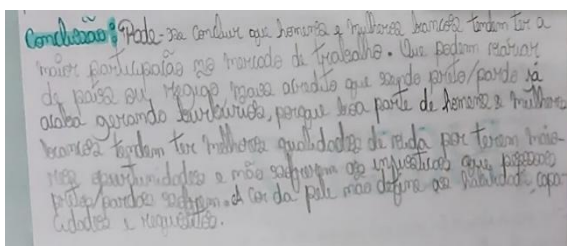 Conclusão: Pode-se concluir que homens e mulheres brancos tendem ter a
maior participação no mercado de trabalho. Que podem variar
de países ou região mais acredito que sendo preto/pardo já
acaba gerando burburios, porque boa parte de homens e mulheres
brancos tendem ter melhores qualidades de renda por terem maio-
res oportunidades e não sofrerem as injustiças que pessoas
pretas/pardas sofrem. A cor da pele não define as habilidade, capa-
cidades e requesitos.